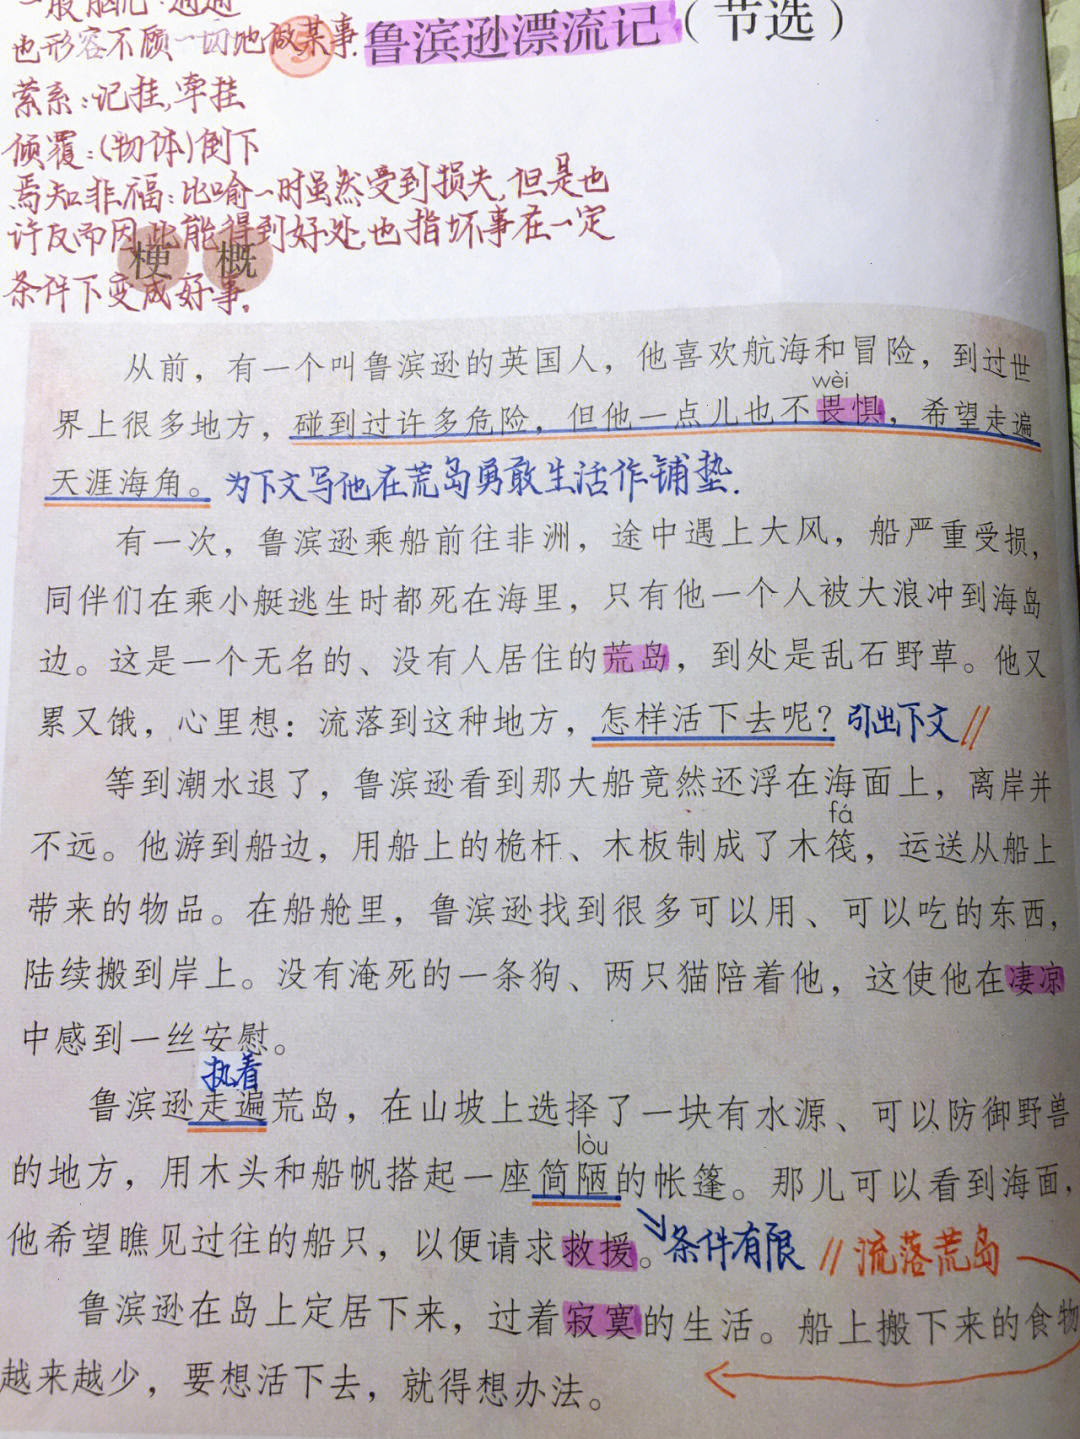 一股脑儿：通通
也形容不顾一切地做某事.
鲁滨逊漂流记（节选）
萦系：记挂,牵挂
倾覆：(物体)倒下
焉知非福：比喻一时虽然受到损失,但是也
许反而因此能得到好处,也指坏事在一定
条件下变成好事。
梗概
从前，有一个叫鲁滨逊的英国人，他喜欢航海和冒险，到过世
wèi
界上很多地方，碰到过许多危险，但他一点儿也不畏惧，希望走遍
天涯海角。为下文写他在荒岛勇敢生活作铺垫.
有一次，鲁滨逊乘船前往非洲，途中遇上大风，船严重受损，
同伴们在乘小艇逃生时都死在海里，只有他一个人被大浪冲到海岛
边。这是一个无名的、没有人居住的荒岛，到处是乱石野草。他又
累又饿，心里想：流落到这种地方，怎样活下去呢？引出下文//
等到潮水退了，鲁滨逊看到那大船竟然还浮在海面上，离岸并
fá
不远。他游到船边，用船上的桅杆、木板制成了木筏，运送从船上
带来的物品。在船舱里，鲁滨逊找到很多可以用、可以吃的东西，
陆续搬到岸上。没有淹死的一条狗、两只猫陪着他，这使他在凄凉
中感到一丝安慰。
执着
鲁滨逊走遍荒岛，在山坡上选择了一块有水源、可以防御野兽
lòu
的地方，用木头和船帆搭起一座简陋的帐篷。那儿可以看到海面，
他希望瞧见过往的船只，以便请求救援。条件有限 //流落荒岛
鲁滨逊在岛上定居下来，过着寂寞的生活。船上搬下来的食物
越来越少，要想活下去，就得想办法。